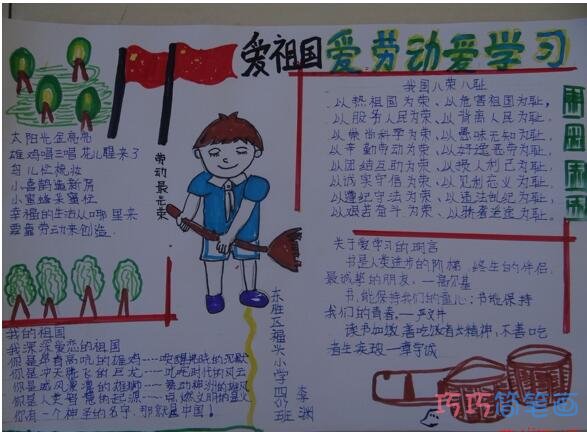 爱祖国 爱劳动爱学习
太阳光金亮亮
雄鸡唱三唱 花儿醒来了
鸟儿忙梳妆
小喜鹊造新房
小蜜蜂采蜜忙
幸福的生活从哪里来
要靠劳动来创造.
劳动最光荣
我国八荣八耻
以热爱祖国为荣、以危害祖国为耻,
以服务人民为荣、以背离人民为耻,
以崇尚科学为荣、以愚昧无知为耻,
以辛勤劳动为荣、以好逸恶劳为耻,
以团结互助为荣、以损人利己为耻,
以诚实守信为荣、以见利忘义为耻,
以遵纪守法为荣、以违法乱纪为耻,
以艰苦奋斗为荣、以骄奢淫逸为耻.
关于爱学习的名言
书是人类进步的阶梯,终生的伴侣,
最诚挚的朋友.—高尔基
书,能保持我们的童心;书能保持
我们的青春.—严文井
读书加餐,善吃饭者长精神,不善吃
者生痰瘤—章守诚
我的祖国
我深深爱恋的祖国
你是昂首高吭的雄鸡----唤醒拂晓的沉默
你是冲天腾飞的巨龙----叱咤时代的风云
你是威风凛凛的雄狮----舞动神州的雄风
你是人类智慧的起源----点燃文明的星火
你有一个神圣的名字,那就是中国!
东胜区福兴小学四(3)班
李渊
巧巧简笔画